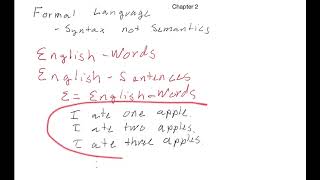 Formal Language
Chapter 2
- Syntax not Semantics
English-Words
English-Sentences
Σ = English-Words
I ate one apple.
I ate two apples.
I ate three apples.
⋮